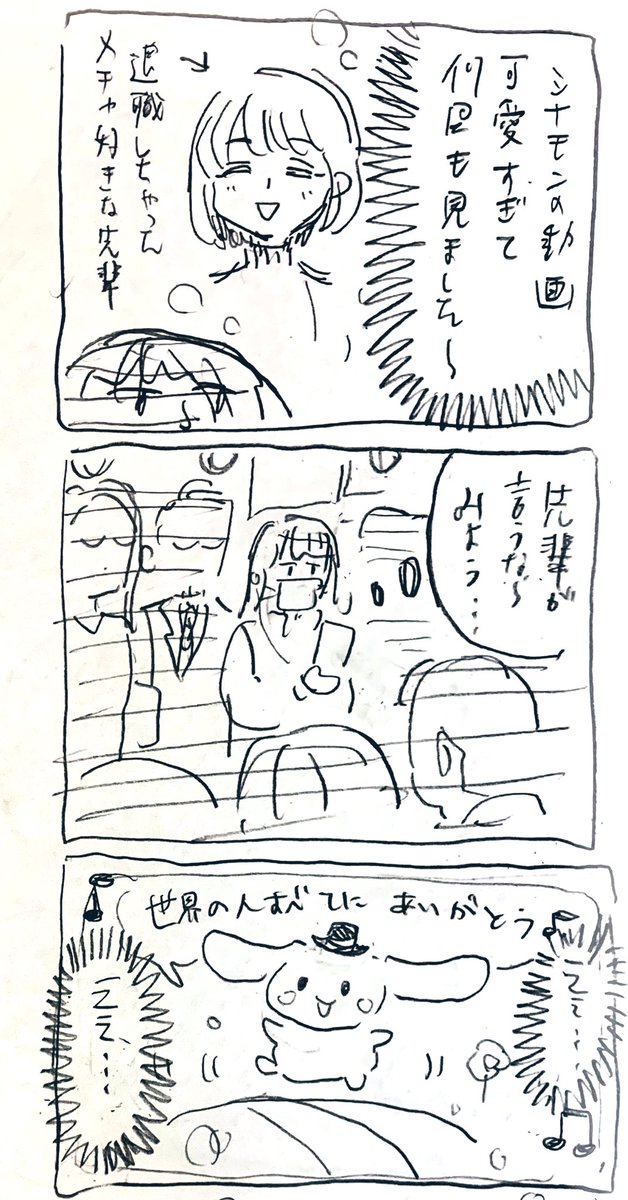 シナモンの動画
可愛すぎて
何回も見ました〜
退職しちゃった
メチャ好きな先輩
先輩が
言うなら
みよう…
世界の人すべてに ありがとう
ええ…
ええ…